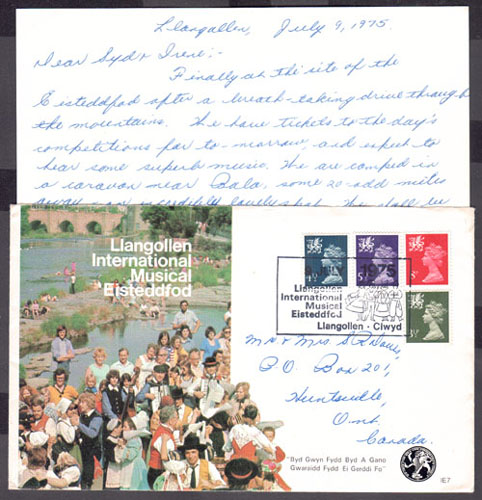 Llangollen, July 9, 1975.
Dear Syd & Irene;-
Finally at the site of the
Eisteddfod after a breath-taking drive through
the mountains. We have tickets to the day's
competitions for to-morrow, and expect to
hear some superb music. We are camped in
a caravan near Bala, some 20-odd miles
away - an incredibly lovely spot. We shall be
Llangollen
International
Musical
Eisteddfod
JULY 1975
Llangollen
International
Musical
Eisteddfod
Llangollen · Clwyd
Mr & Mrs. S.
P.O. Box 201,
Huntsville,
Ont.
Canada.
"Byd Gwyn Fydd Byd A Gano
Gwaraidd Fydd Ei Gerddi Fo"
IE7